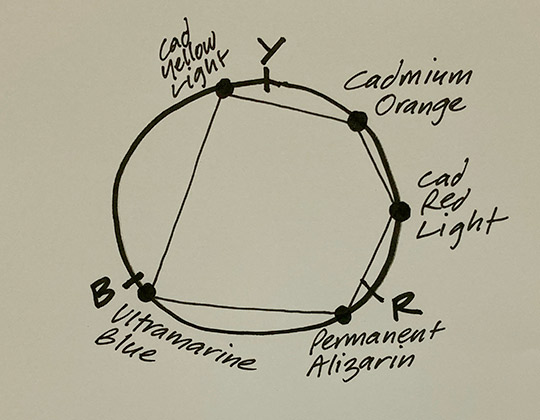 Cad
Yellow
Light
Y
Cadmium
Orange
Cad
Red
Light
R
Permanent
Alizarin
B
Ultramarine
Blue